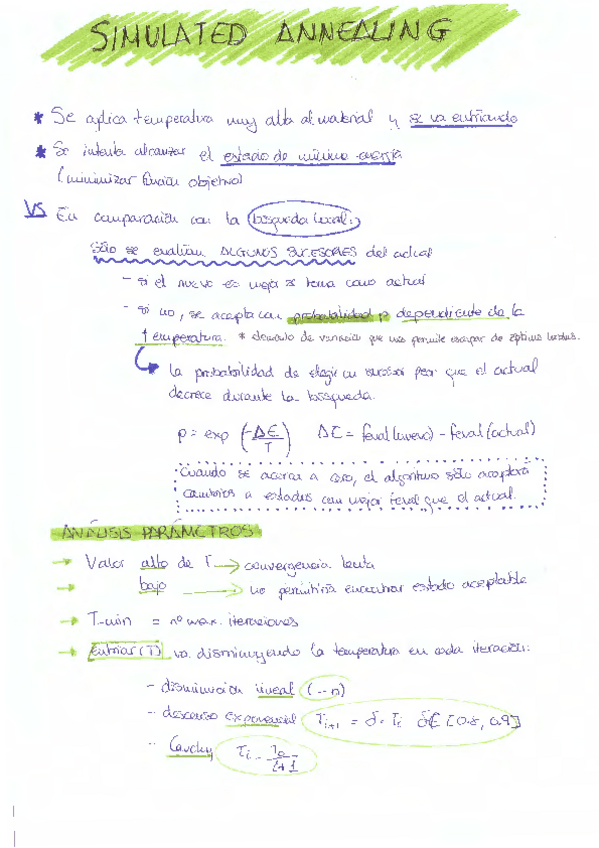 SIMULATED ANNEALING
* Se aplica temperatura muy alta al material y se va enfriando
* Se intenta alcanzar el estado de mínima energía
(minimizar función objetivo)
VS En comparación con la búsqueda local:
Sólo se evalúan ALGUNOS SUCESORES del actual
- si el nuevo es mejor se toma como actual
- si no, se acepta con probabilidad p dependiente de la
temperatura. * elemento de variación que nos permite escapar de óptimos locales.
La probabilidad de elegir un sucesor peor que el actual
decrece durante la búsqueda.
p = exp (-ΔE/T) ΔE = feval(nuevo) - feval(actual)
Cuando se acerca a cero, el algoritmo sólo aceptará
cambios a estados con mejor feval que el actual.
ANÁLISIS PARÁMETROS
→ Valor alto de T → convergencia lenta
→ bajo → no permitiría encontrar estado aceptable
→ T-min = nº max. iteraciones
→ Enfriar(T) va disminuyendo la temperatura en cada iteración:
- disminución lineal (--n)
- descenso exponencial Ti+1 = δ · Ti δ∈ [0.8, 0.9]
- Cauchy Ti = T0/i+1